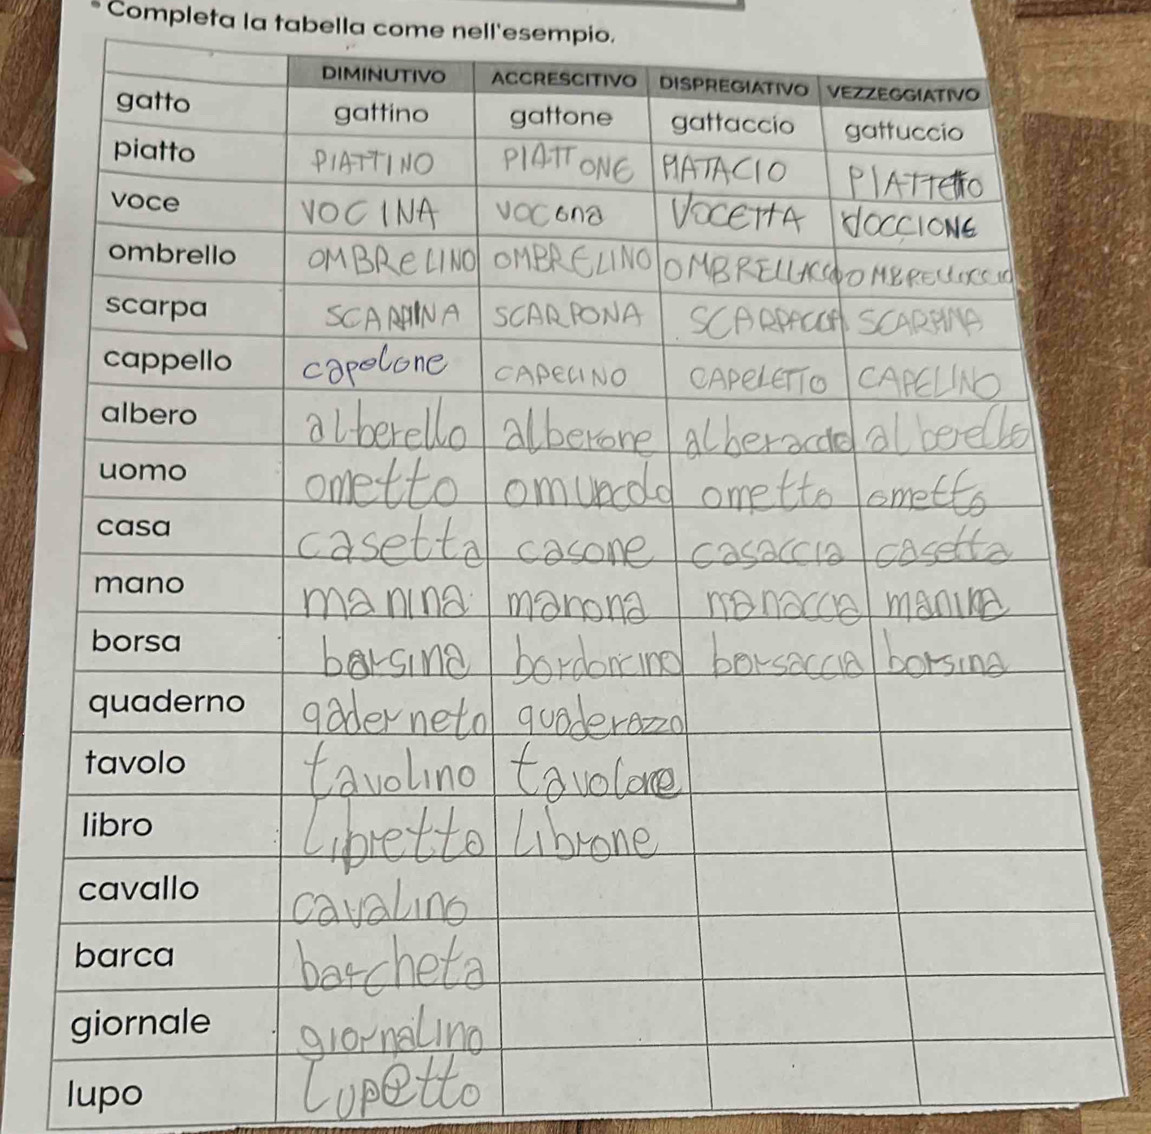 Completa la tabella come nell'esempio.
DIMINUTIVO ACCRESCITIVO DISPREGIATIVO VEZZEGGIATIVO
gatto gattino gattone gattaccio gattuccio
piatto PIATTINO PIATTONE PIATACIO PIATTetto
voce VOCINA VOCona VOCETTA VOCCIONE
ombrello OMBReLINO OMBRELINO OMBRELLACCO OMBRELLUCCIO
scarpa SCARPINA SCARPONA SCARPACCA SCARPINA
cappello capelone CAPELINO CAPELETTO CAPELINO
albero alberello alberone alberaccio alberello
uomo ometto ometto ometto
casa casetta casone casaccia casetta
mano manina manona manaccia manina
borsa borsina borsaccia borsina
quaderno qaderneto quaderazzo
tavolo tavolino tavolone
libro Libretto Librone
cavallo cavalino
barca barcheta
giornale giornalino
lupo Lupetto